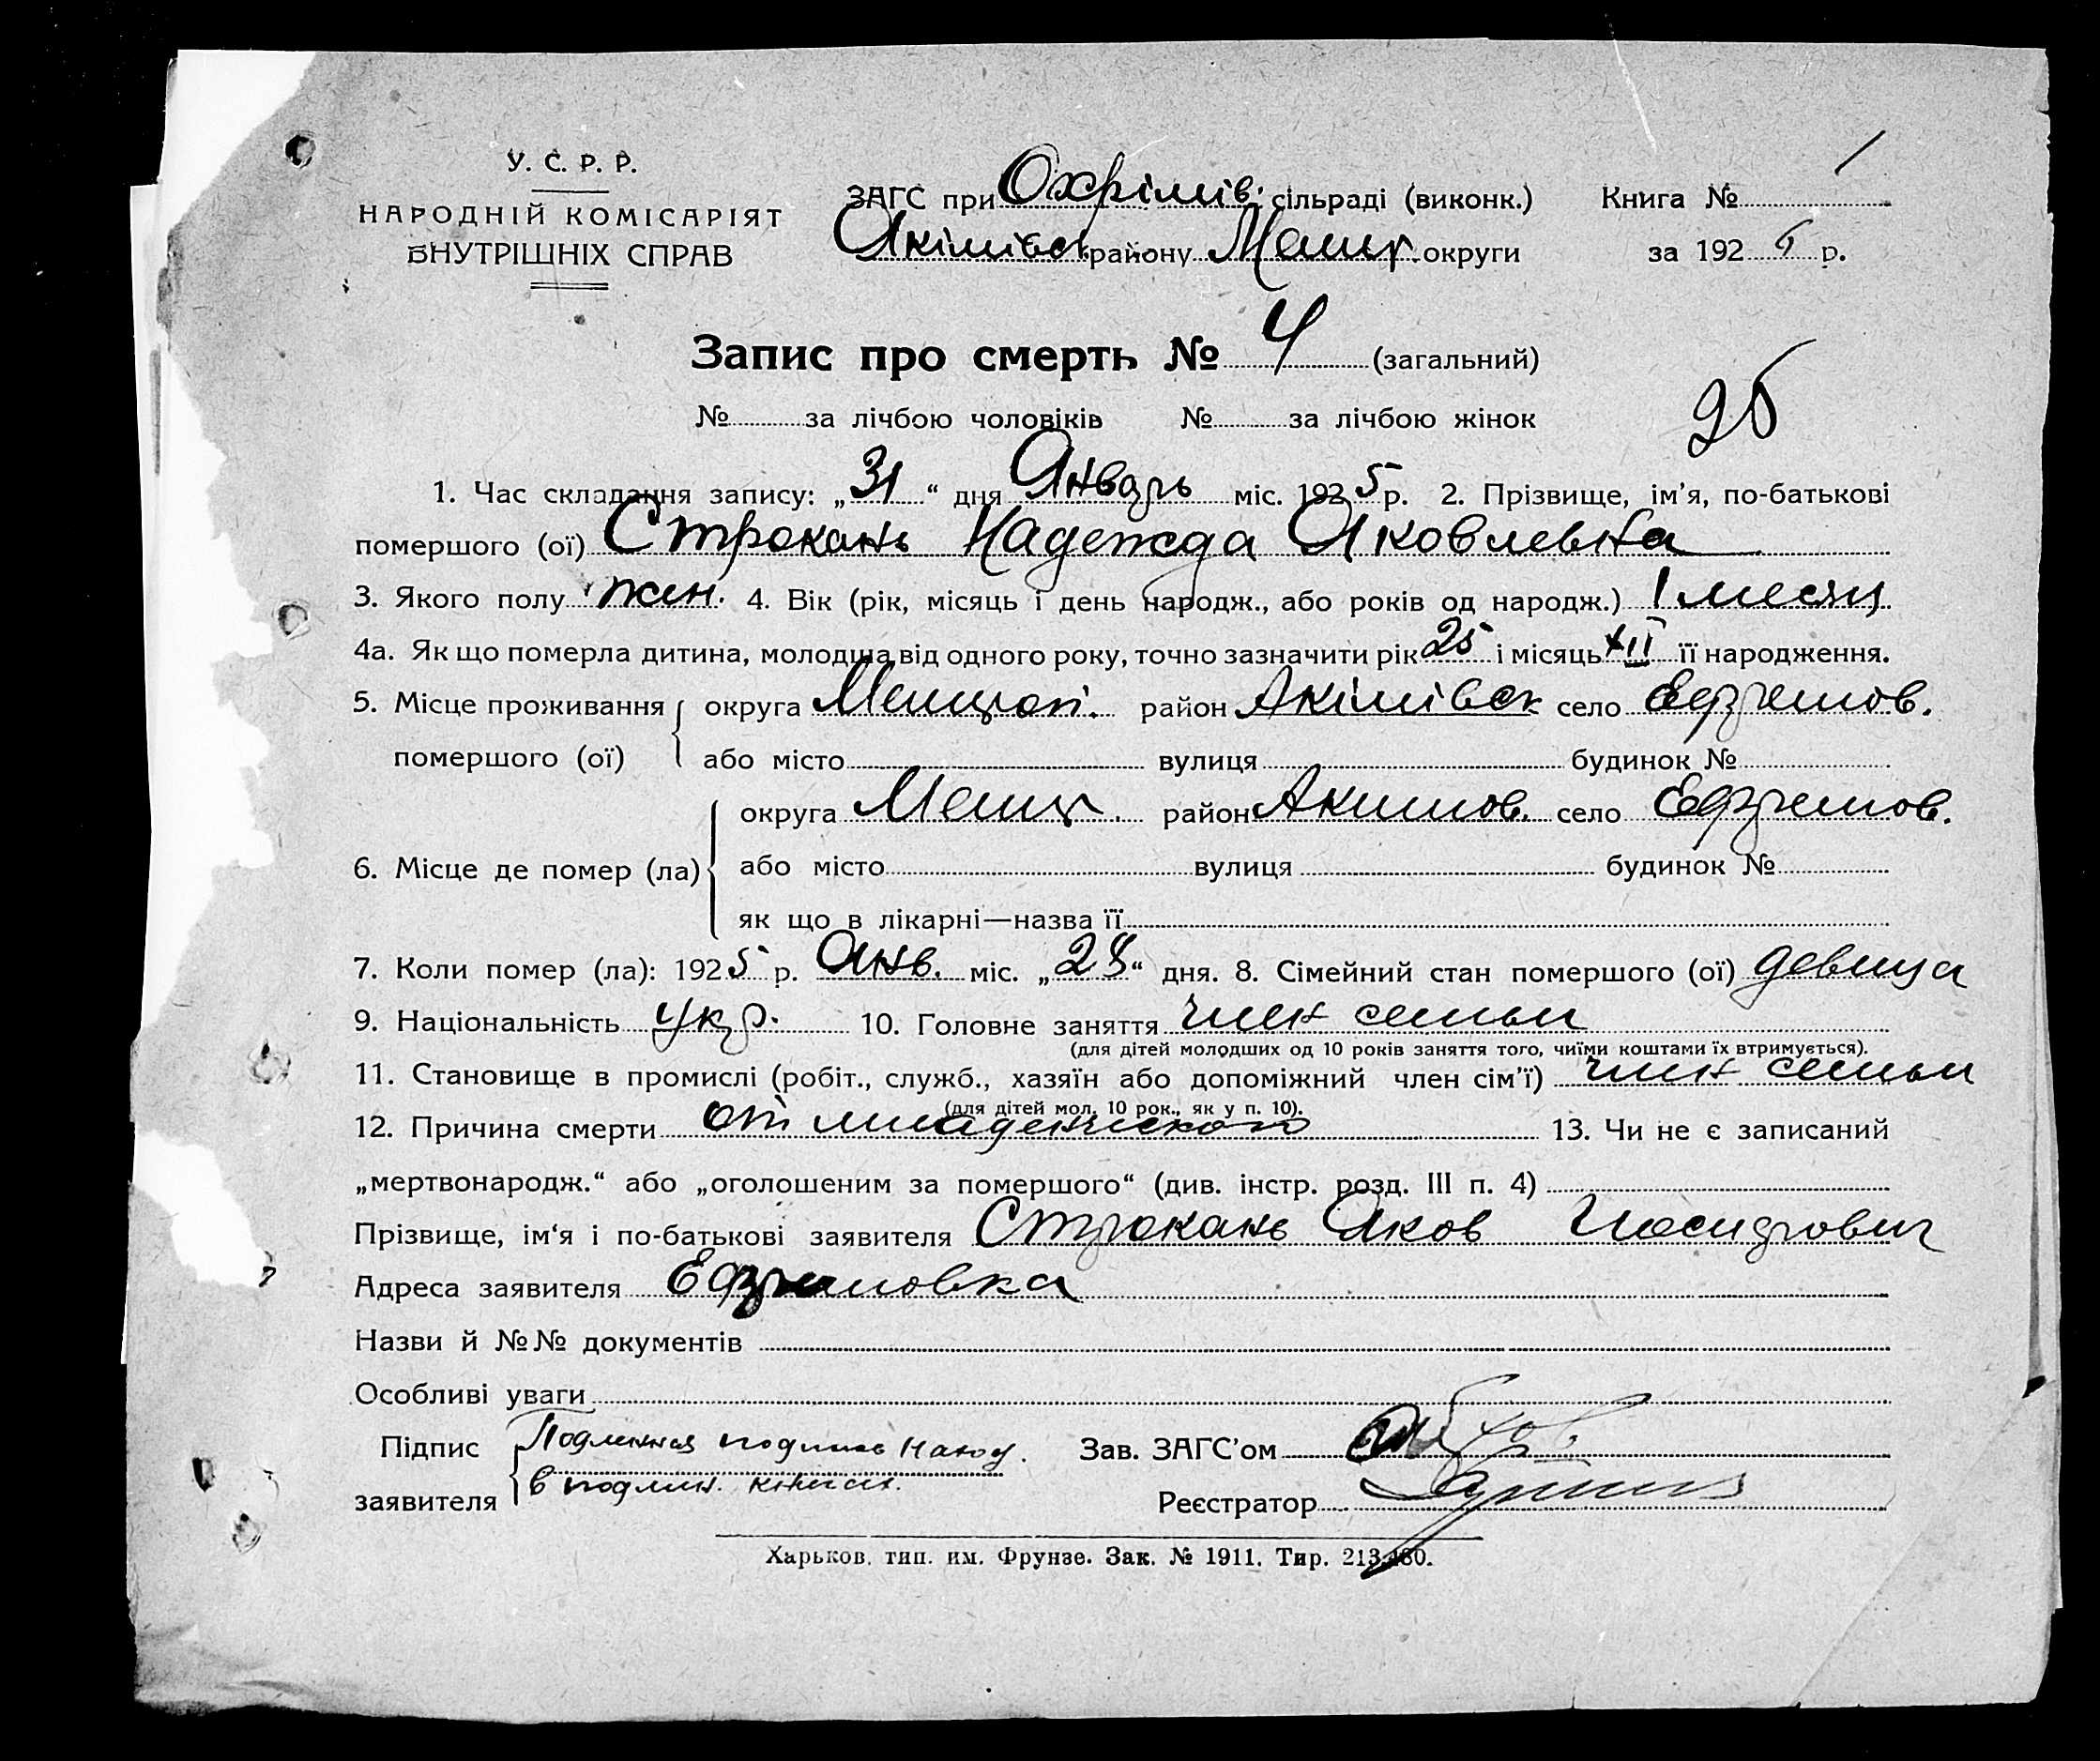 У. С. Р. Р.
НАРОДНІЙ КОМІСАРІЯТ
ВНУТРІШНІХ СПРАВ
ЗАГС при Охрімів. сільраді (виконк.) Книга № 1
Якімівск району Мелит округи за 192 р.
Запис про смерть № 4 (загальний)
№ за лічбою чоловіків № за лічбою жінок
1. Час складання запису: „31“ дня Январь міс. 1925 р. 2. Прізвище, ім'я, по-батькові
помершого (ої) Строкань Надежда Яковлевна
3. Якого полу жен. 4. Вік (рік, місяць і день народж., або років од народж.) 1 месяц
4а. Як що померла дитина, молодша від одного року, точно зазначити рік 25 і місяць XII її народження.
5. Місце проживання округа Мелитоп. район Акімівск село Ефремов.
помершого (ої) або місто вулиця будинок №
округа Мелит. район Акимов. село Ефремов.
6. Місце де помер (ла) або місто вулиця будинок №
як що в лікарні—назва її
7. Коли помер (ла): 1925 р. Янв. міс. „28“ дня. 8. Сімейний стан помершого (ої) девица
9. Національність укр. 10. Головне заняття член семьи
(для дітей молодших од 10 років заняття того, чиїми коштами їх втримується).
11. Становище в промислі (робіт., служб., хазяїн або допоміжний член сім'ї) член семьи
(для дітей мол. 10 рок., як у п. 10).
12. Причина смерти от младенческого 13. Чи не є записаний
„мертвонародж.“ або „оголошеним за помершого“ (див. інстр. розд. III п. 4)
Прізвище, ім'я і по-батькові заявителя Строкань Яков Иосифович
Адреса заявителя Ефремовка
Назви й №№ документів
Особливі уваги
Підпис Подлинная подпись наход. Зав. ЗАГС'ом
заявителя в подлин. книги. Реєстратор
Харьков, тип. им. Фрунзе. Зак. № 1911. Тир.